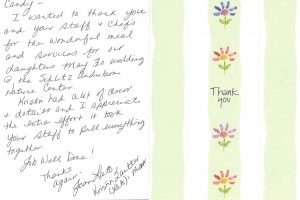 Candy -
I wanted to thank you
and your staff & Chefs
for the wonderful meal
and services for our
daughters May 30 wedding
@ the Schlitz Audubon
Nature Center.
Kristin had a lot of decor
+ details and I appreciate
the extra effort it took
your staff to pull everything
together.
Job Well Done!
Thanks
again.
Thank
you